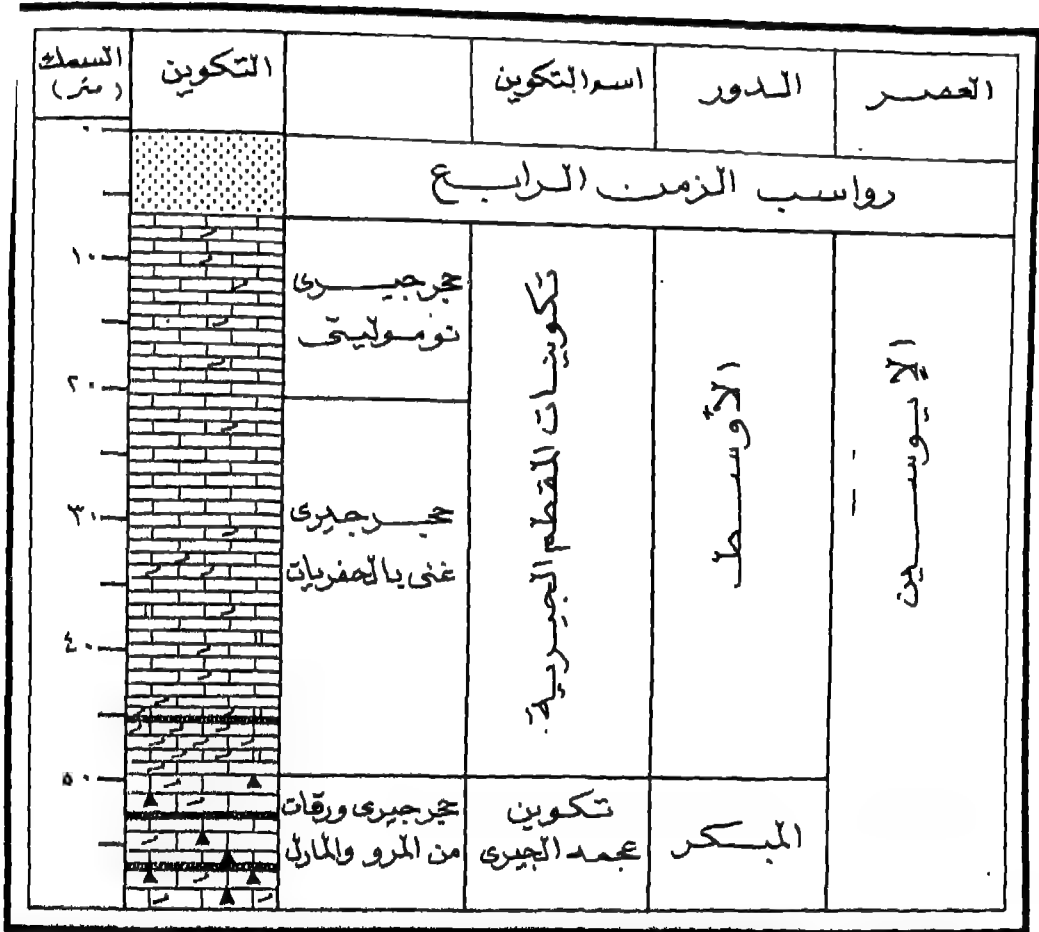 العصر
الدور
اسم التكوين
التكوين
السمك
(متر)
رواسب الزمن الرابع
الإيوسين
الأوسط
تكوينات المقطم الجيرية
حجر جيرى
نوموليتى
حجر جيرى
غنى بالحفريات
المبكر
تكوين
عجمه الجيرى
حجر جيرى ورقات
من المرو والمارل
٠
١٠
٢٠
٣٠
٤٠
٥٠